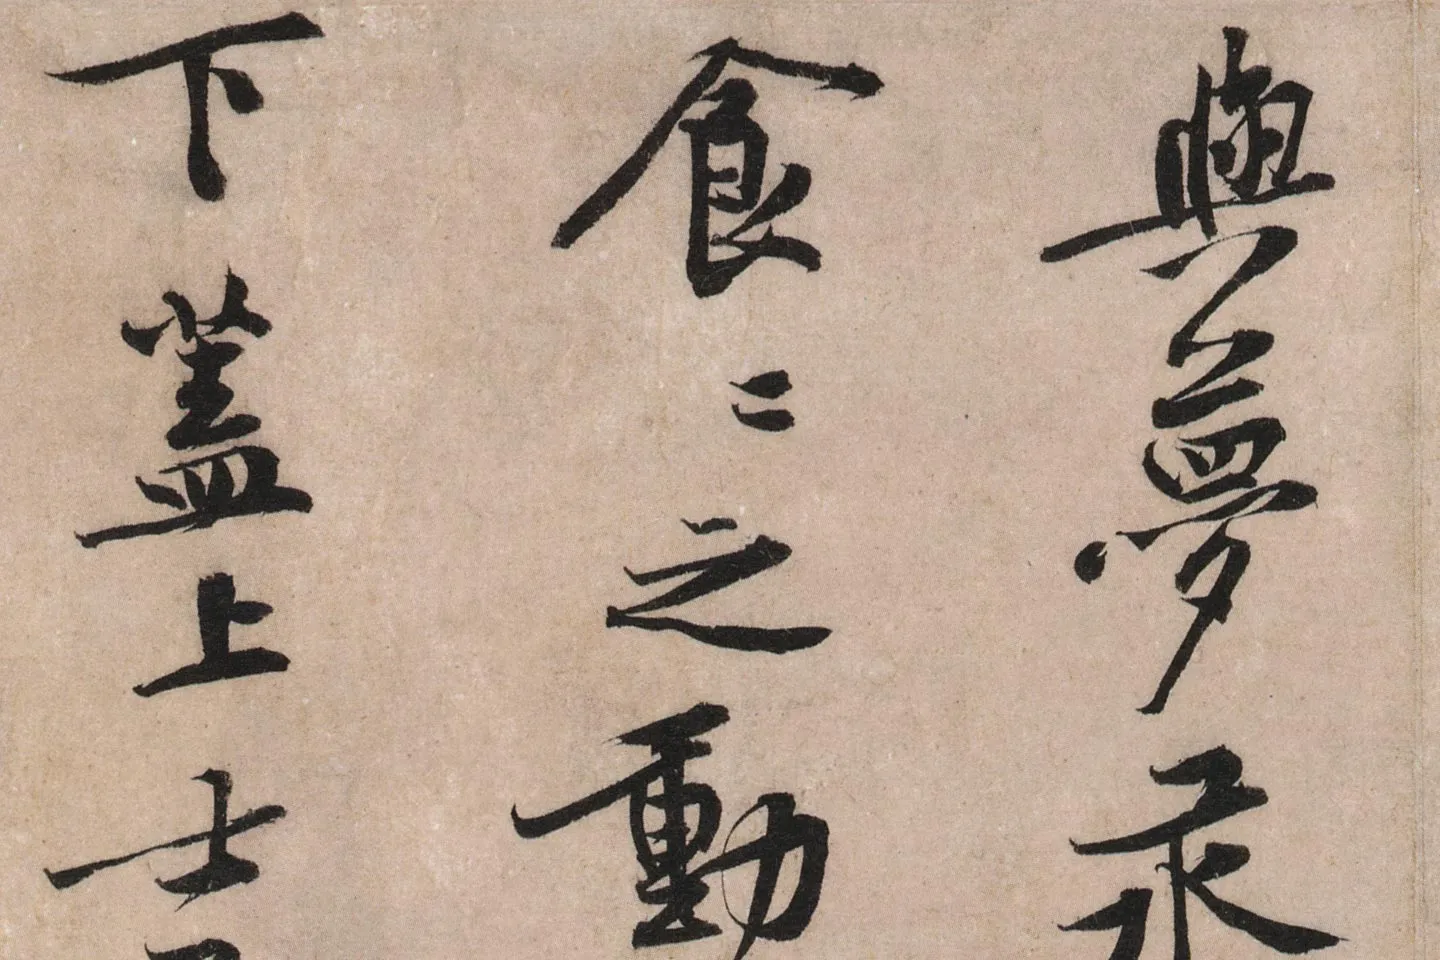 與夢承
食〻之動
下蓋上士